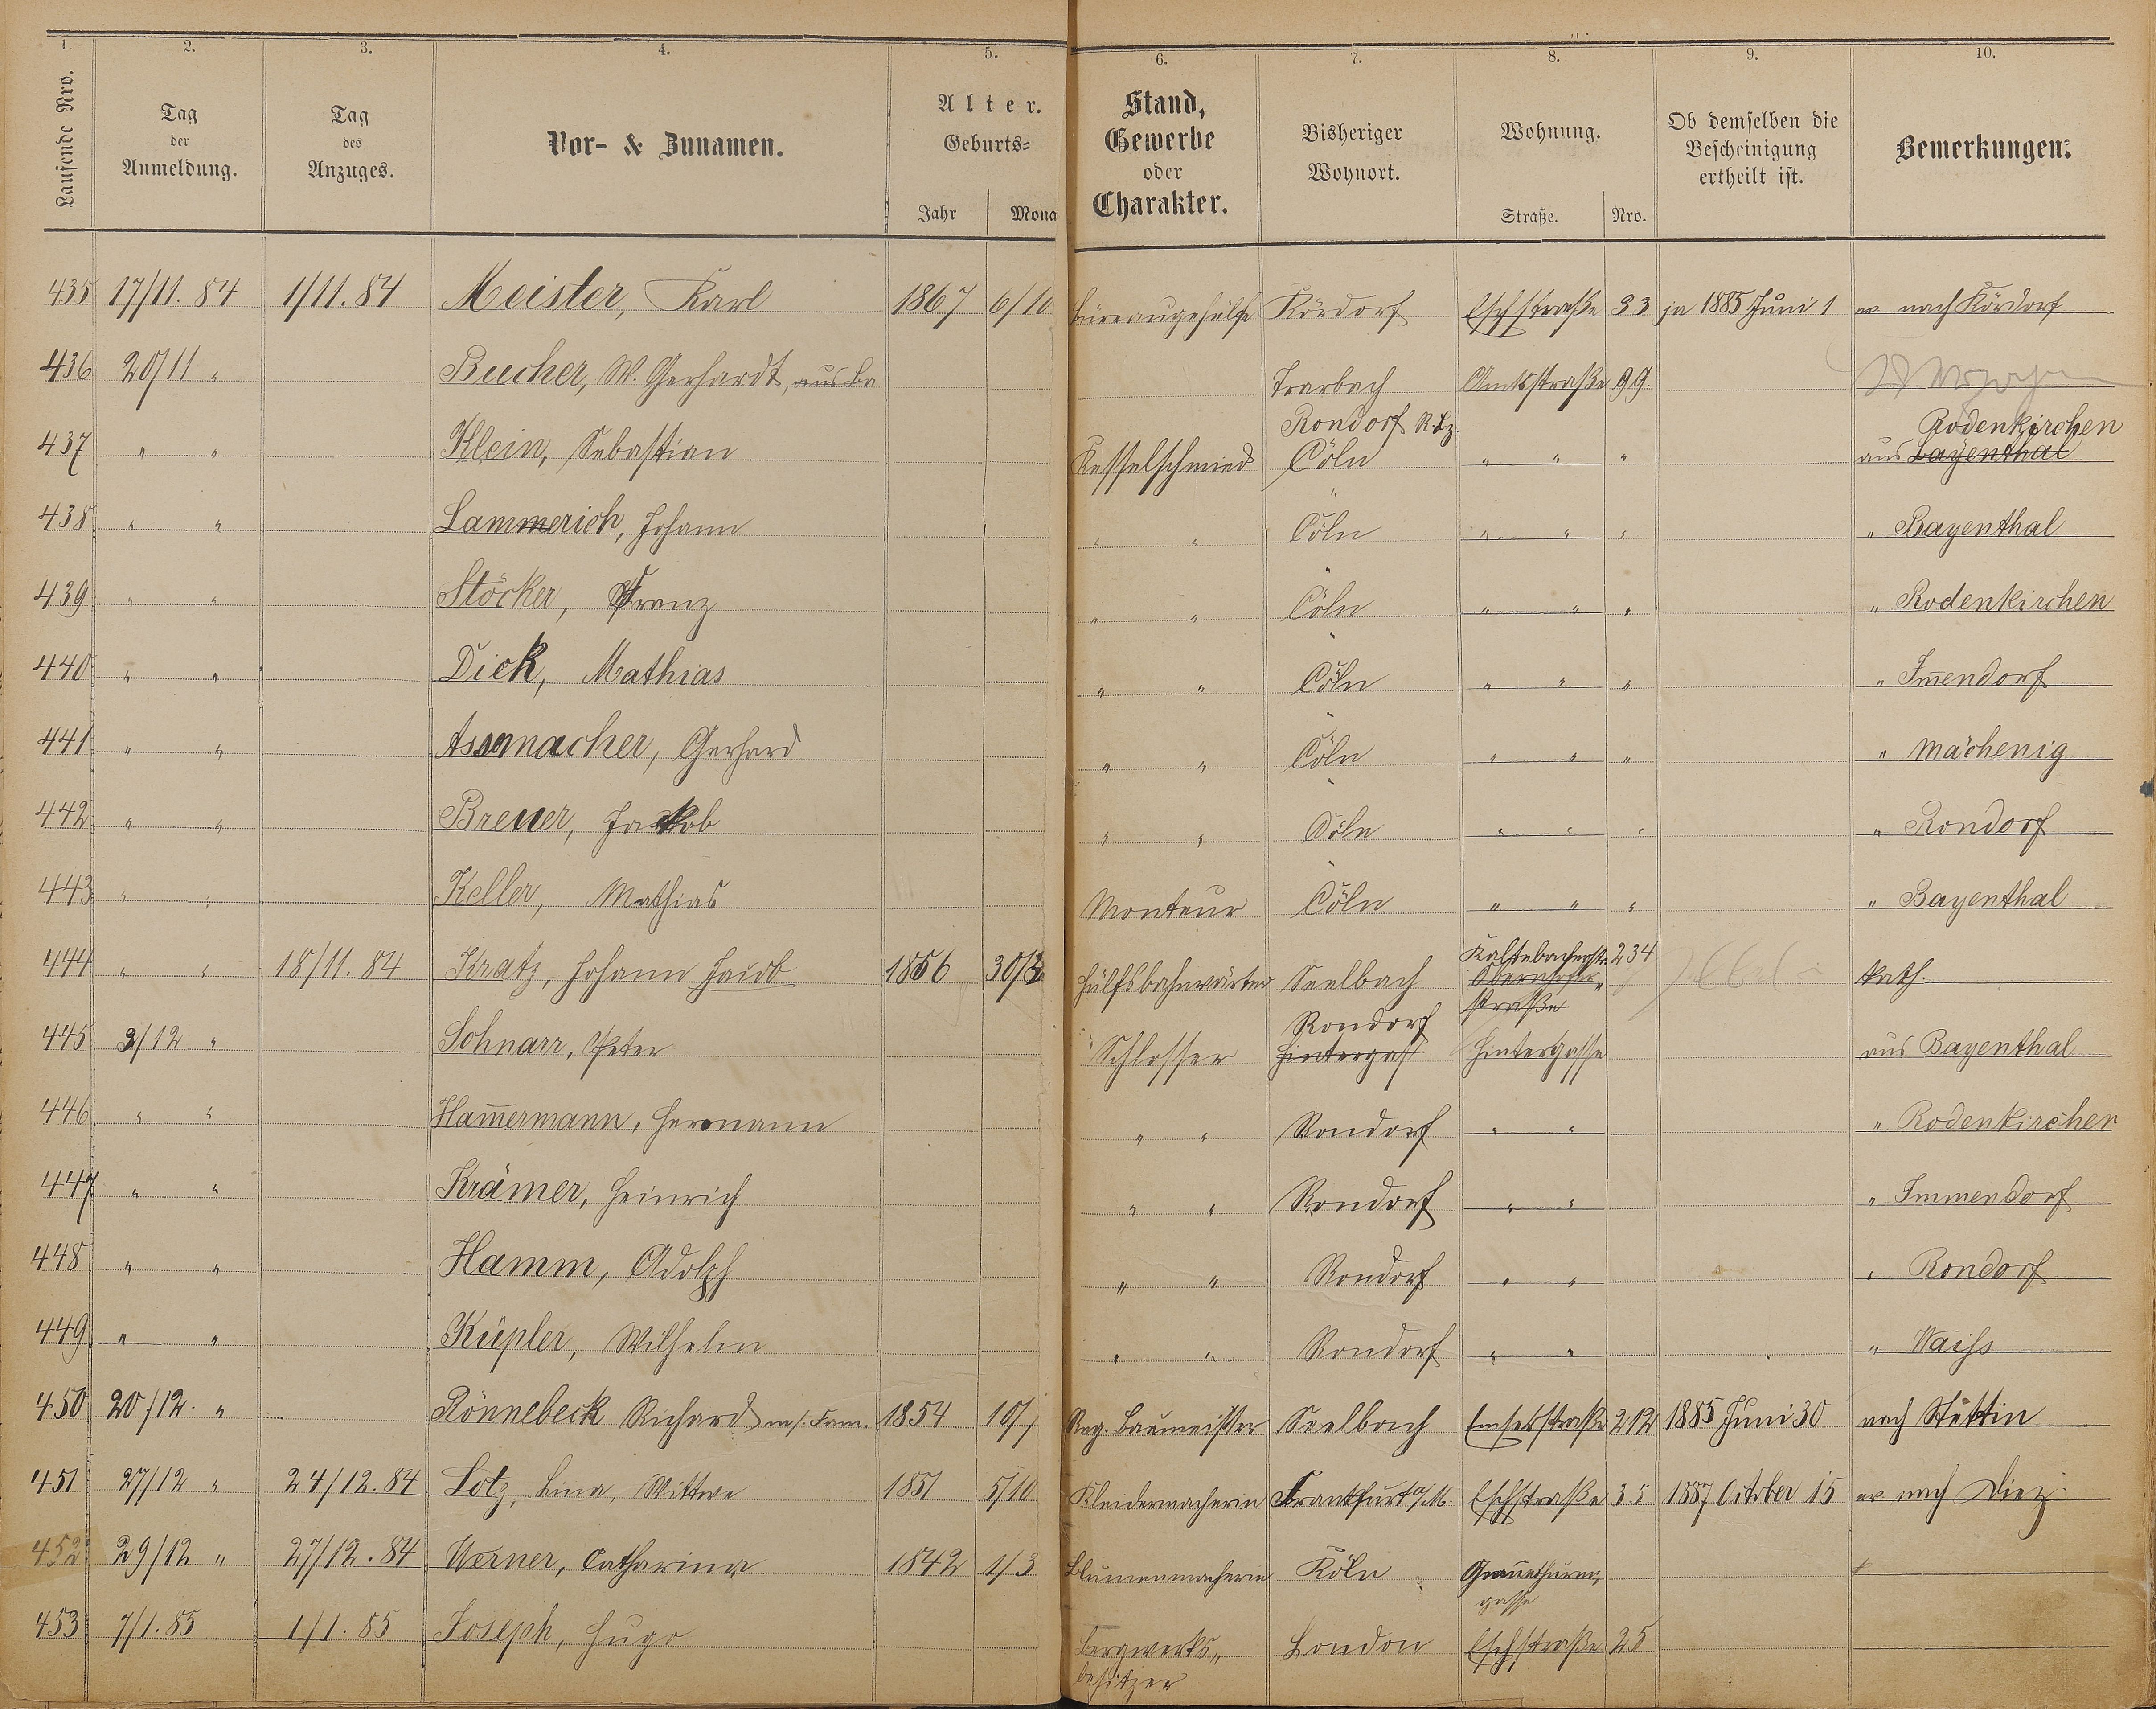 1. 2. 3. 4. 5. 6. 7. 8. 9. 10.
Laufende Nro. Tag der Anmeldung. Tag des Anzuges. Vor- & Zunamen. Alter. Geburts= Jahr Mona Stand, Gewerbe oder Charakter. Bisheriger Wohnort. Wohnung. Straße. Nro. Ob demselben die Bescheinigung ertheilt ist. Bemerkungen.
435 17/11. 84 1/11. 84 Meister, Karl 1867 6/10 Büreaugehülfe Kördorf Eschstraße 33 ja 1885 Juni 1 nach Kördorf
436 20/11 " Bucher, W. Gerhardt, Trarbach Amtsstraße 99
437 " " Klein, Sebastian Kesselschmied Rondorf Cöln " " " aus Rodenkirchen Bayenthal
438 " " Lammerich, Johann " " Cöln " " " " Bayenthal
439 " " Stöcker, Franz " " Cöln " " " " Rodenkirchen
440 " " Dick, Mathias " " Cöln " " " " Im̄endorf
441 " " Assmacher, Gerhard " " Cöln " " " " Mächenig
442 " " Breuer, Jakob " " Cöln " " " " Rondorf
443 " " Keller, Mathias Monteur Cöln " " " " Bayenthal
444 " " 18/11. 84 Kratz, Johann Jacob 1856 30/3 Hülfsbahnwärter Seelbach Kaltebacherstr. 234 Obernhoferstraße kath.
445 3/12 " Schnarr, Peter Schlosser Rondorf Hintergass Hintergasse aus Bayenthal
446 " " Ham̄ermann, Hermann " " Rondorf " " " Rodenkirchen
447 " " Krämer, Heinrich " " Rondorf " " " Immendorf
448 " " Hamm, Adolph " " Rondorf " " " Rondorf
449 " " Küpler, Wilhelm " " Rondorf " " " Waiss
450 20/12. " Rönnebeck Richard m/s. Fam. 1854 10/7 Reg. Baumeister Seelbach Emserstraße 212 1885 Juni 30 nach Stettin
451 27/12 " 24/12. 84 Lotz, Lina, Wittwe 1851 5/10 Kleidermacherin Frankfurt a/M. Eschstraße 35 1887 October 15 nach Diez
452 29/12 " 27/12. 84 Werner, Catharina 1842 1/3 Blumenmacherin Köln Grauethurmgasse
453 7/1. 85 1/1. 85 Joseph, Hugo Bergwerksbesitzer London Eschstraße 25